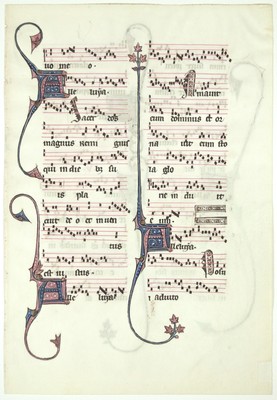 uo me o
Alle luya.
Sacer dos
magnus remi gius
qui in die bz su
is pla
cuit de o et in uen
tus
est ius tus.
Alle luya.
Amauit
eum dominus et or
na uit eum sto
la glo
rie in du it
e um.
Alleluya.
Posu
i adiuto